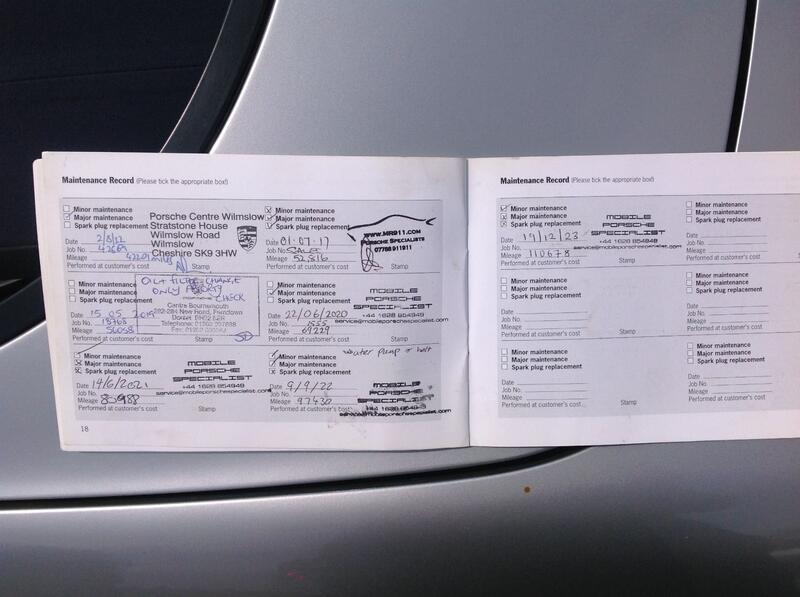 Maintenance Record (Please tick the appropriate box!)
Minor maintenance
Major maintenance
Spark plug replacement
Date 2/8/12
Job No.
Mileage
Performed at customer's cost
Stamp
Porsche Centre Wilmslow
Stratstone House
Wilmslow Road
Wilmslow
Cheshire SK9 3HW
Minor maintenance
Major maintenance
Spark plug replacement
Date 01-07-17
Job No.
Mileage 52816
Performed at customer's cost
Stamp
WWW.MR911.COM
PORSCHE SPECIALISTS
07768 911911
Minor maintenance
Major maintenance
Spark plug replacement
Date 15 05 2019
Job No.
Mileage 56058
Performed at customer's cost
OIL + FILTER CHANGE
ONLY
CHECK
Centre Bournemouth
Stamp
Minor maintenance
Major maintenance
Spark plug replacement
Date 22/06/2020
Job No. 1555
Mileage 69229
Performed at customer's cost
Stamp
MOBILE
PORSCHE
SPECIALIST
+44 1628 854949
service@mobileporschespecialist.com
Minor maintenance
Major maintenance
Spark plug replacement
Date 19/6/2021
Job No.
Mileage
Performed at customer's cost
Stamp
MOBILE
PORSCHE
SPECIALIST
+44 1628 854949
service@mobileporschespecialist.com
water pump + belt
Minor maintenance
Major maintenance
Spark plug replacement
Date 9/9/22
Job No.
Mileage 97430
Performed at customer's cost
Stamp
MOBILE
PORSCHE
SPECIALIST
+44 1628 854949
service@mobileporschespecialist.com
18
Maintenance Record (Please tick the appropriate box!)
Minor maintenance
Major maintenance
Spark plug replacement
Date 19/12/23
Job No.
Mileage 110678
Performed at customer's cost
Stamp
MOBILE
PORSCHE
SPECIALIST
+44 1628 854949
service@mobileporschespecialist.com
Minor maintenance
Major maintenance
Spark plug replacement
Date
Job No.
Mileage
Performed at customer's cost
Minor maintenance
Major maintenance
Spark plug replacement
Date
Job No.
Mileage
Performed at customer's cost
Stamp
Minor maintenance
Major maintenance
Spark plug replacement
Date
Job No.
Mileage
Performed at customer's cost
Minor maintenance
Major maintenance
Spark plug replacement
Date
Job No.
Mileage
Performed at customer's cost
Stamp
Minor maintenance
Major maintenance
Spark plug replacement
Date
Job No.
Mileage
Performed at customer's cost